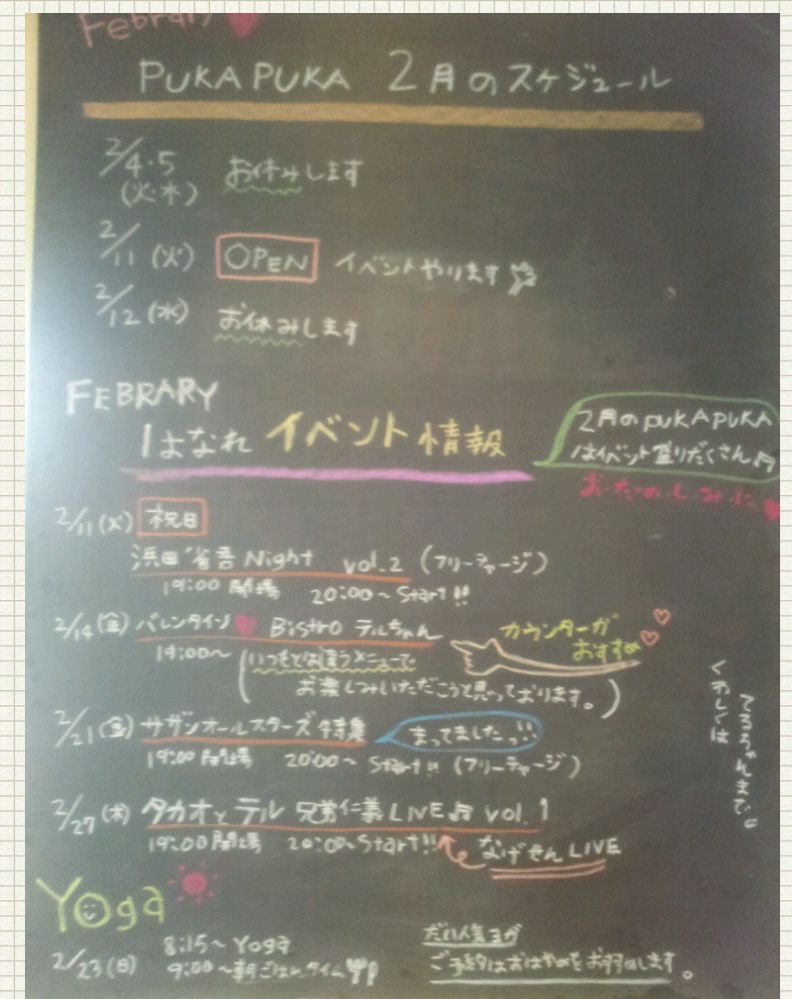 Febrary
PUKAPUKA 2月のスケジュール
2/4・5
(火・水)
お休みします
2/11 (火) OPEN イベントやります
2/12 (水) お休みします
FEBRARY
はなれ イベント情報
2月のPUKAPUKA
はイベント盛りだくさん♬
お・た・の・し・み・に
2/11 (火) 祝日
浜田省吾 Night vol.2 (フリーチャージ)
19:00 開場 20:00~ Start!!
2/14 (金) バレンタイン Bistro テルちゃん
カウンターが
おすすめ
19:00~ (いつもとは違うメニューで
お楽しみいただこうと思っております。)
2/21 (金) サザンオールスターズ特集 まってましたっ!!
19:00 開場 20:00~ Start!! (フリーチャージ)
くわしくは
てるちゃんまで
2/27 (木) タカオとテル 兄弟仁義LIVE♬ vol.1
19:00 開場 20:00~Start!! なげせんLIVE
Yoga
2/23 (日) 8:15~ Yoga
9:00~朝ごはんタイム
だい人気ヨガ
ご予約はおはやめをおすすめします。